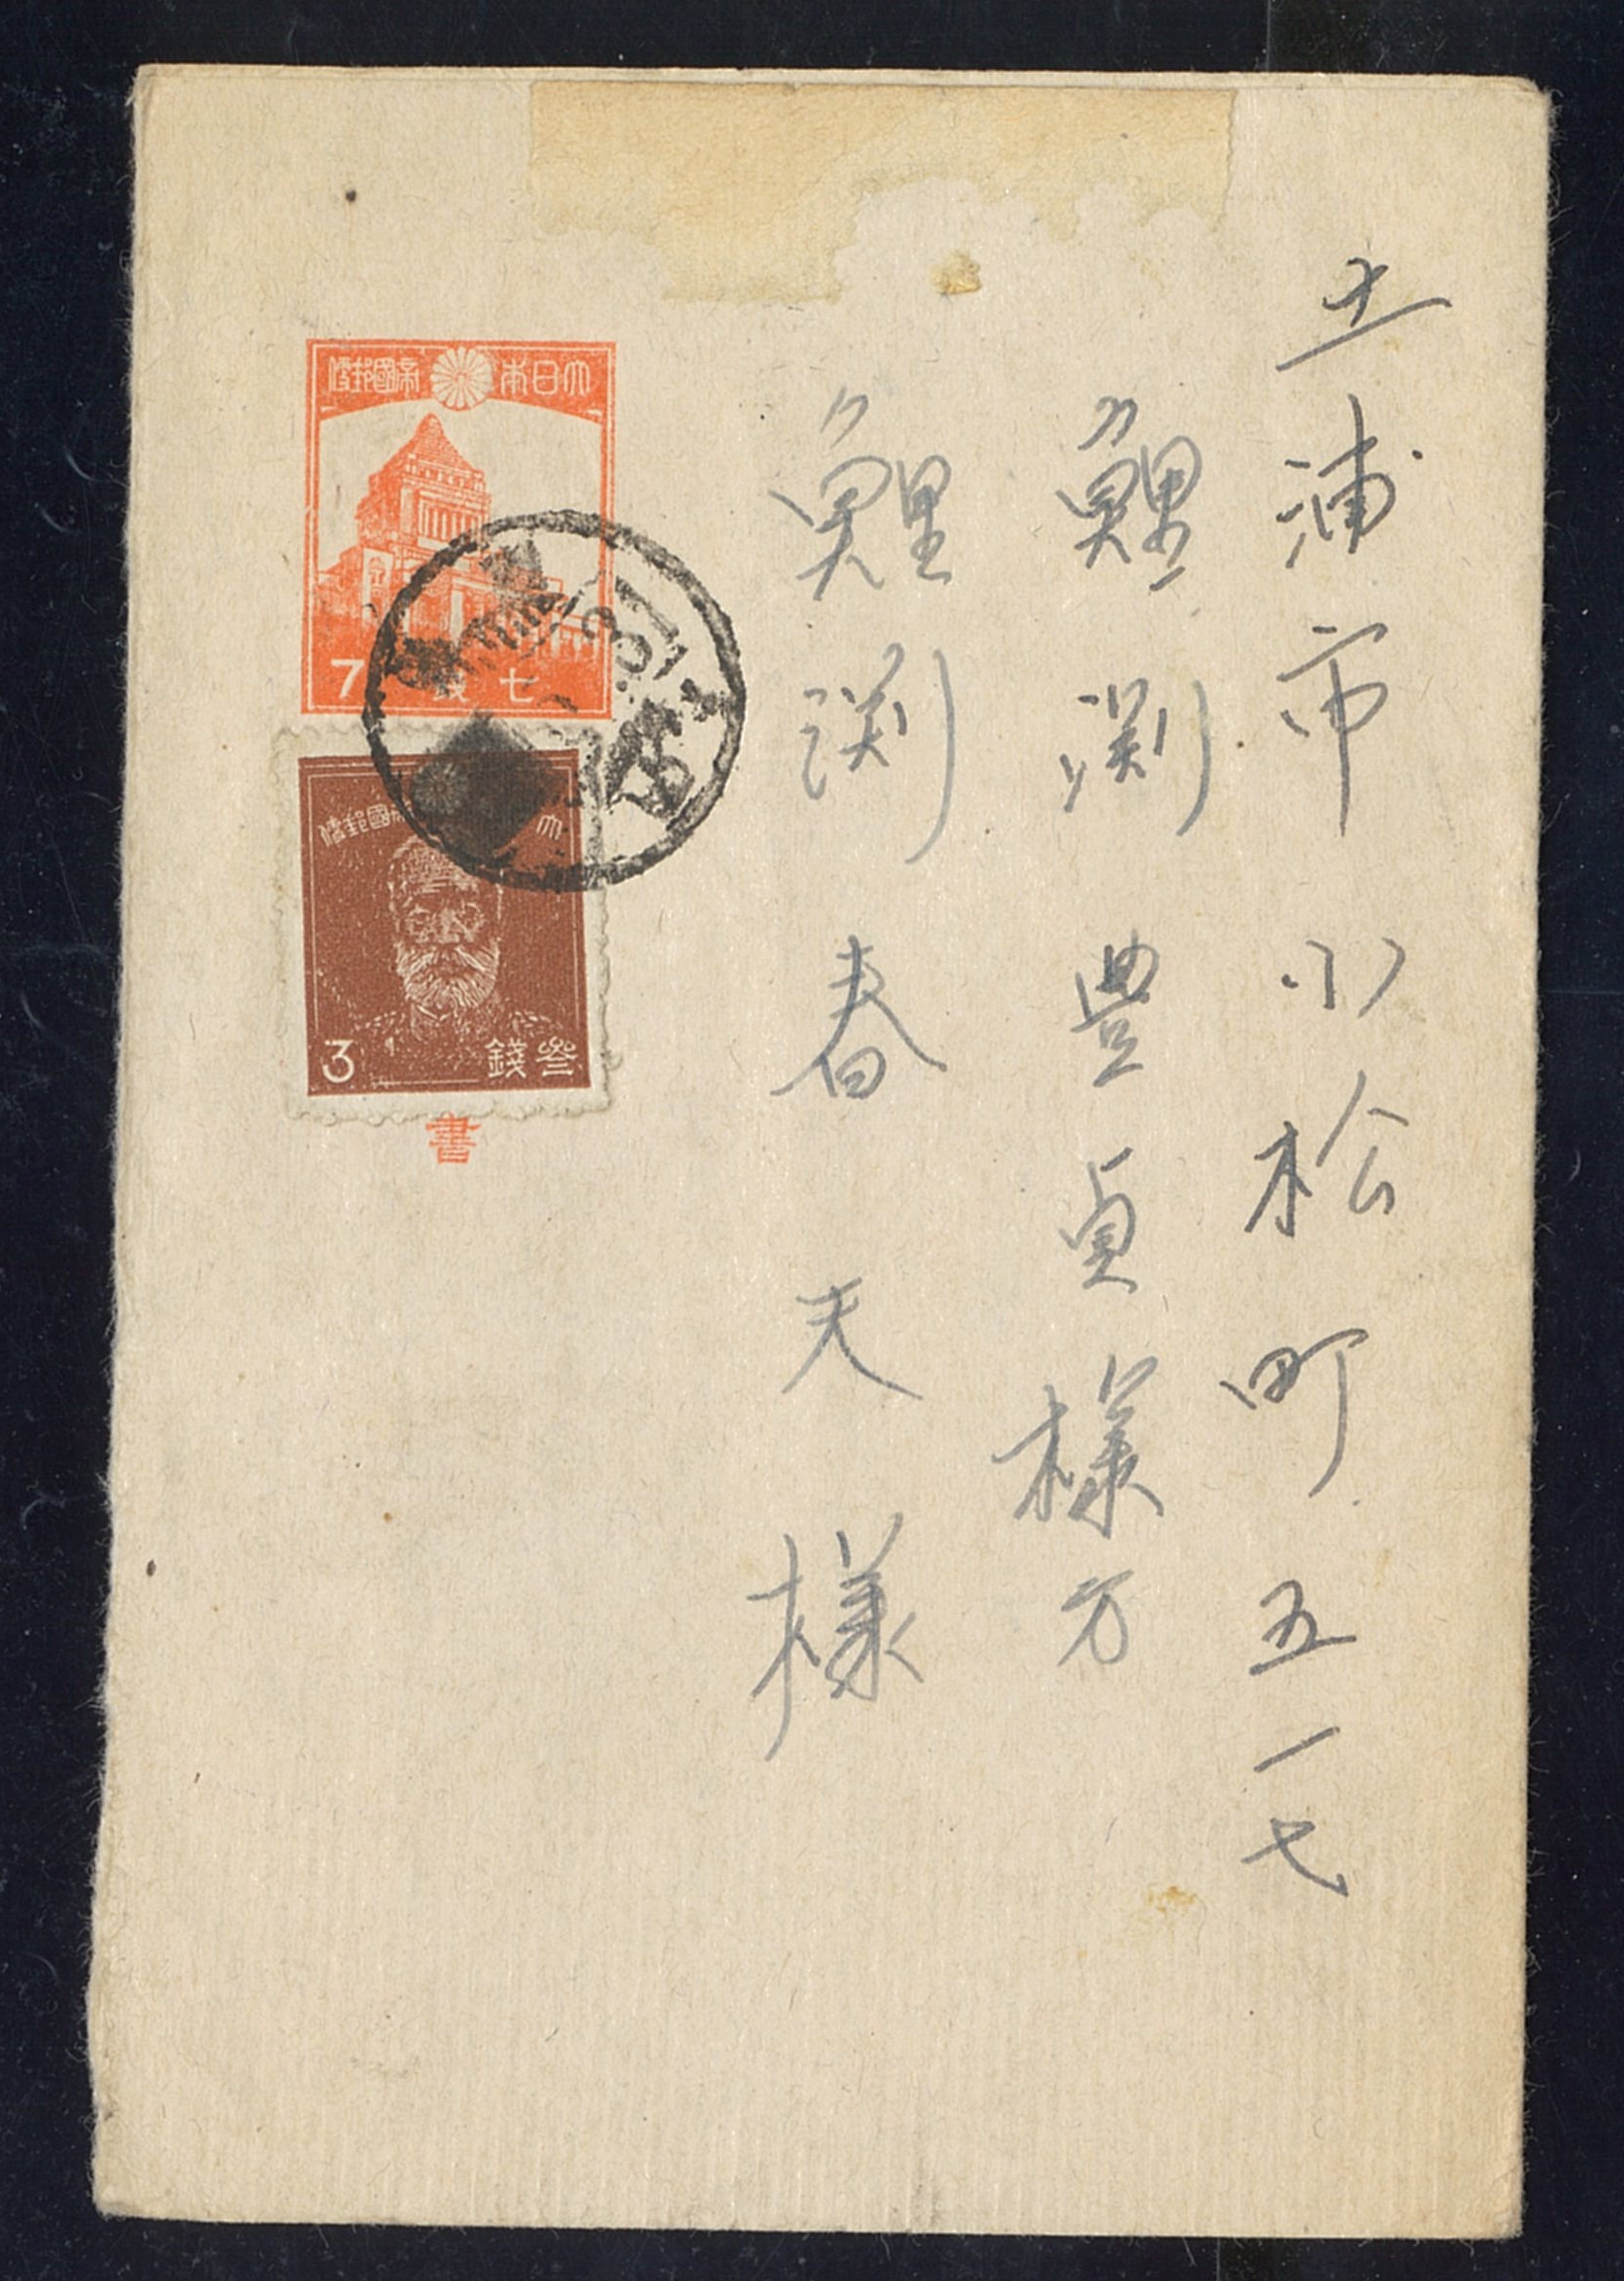 土浦市小松町五一七
鯉渕豊貞様方
鯉渕春夫様
大日本帝國郵便
7 七錢
大 帝國郵便
3 叁錢
書